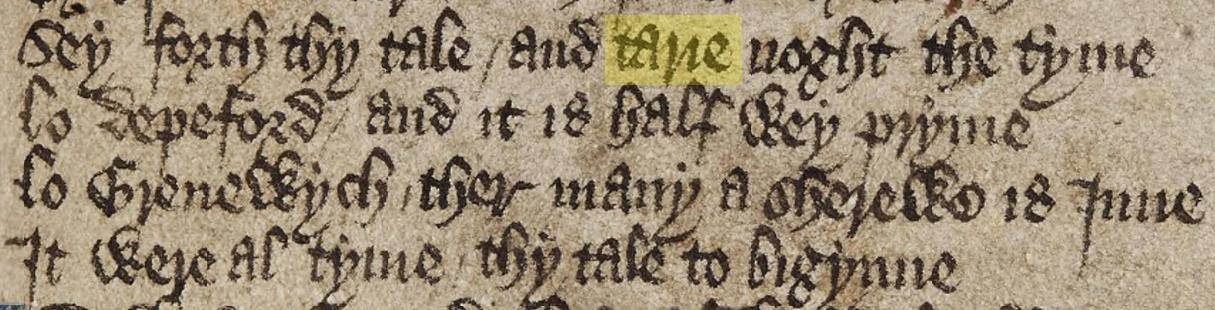 Sey forth thy tale / and tarie noght the tyme
lo depeford / and it is half wey pryme
lo Grenewych / ther many a sherewe is Inne
It were al tyme / thy tale to bigynne